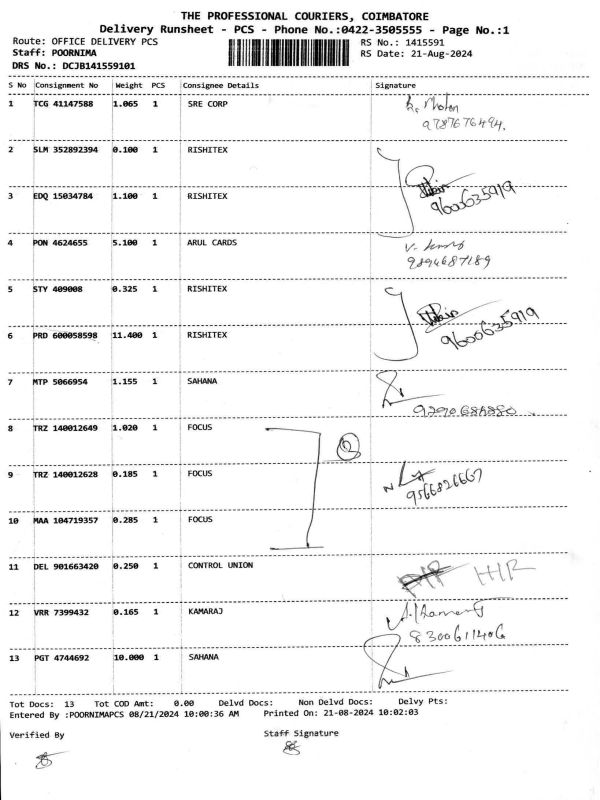 THE PROFESSIONAL COURIERS, COIMBATORE
Delivery Runsheet - PCS - Phone No.:0422-3505555 - Page No.:1
Route: OFFICE DELIVERY PCS RS No.: 1415591
Staff: POORNIMA RS Date: 21-Aug-2024
DRS No.: DCJB141559101
S No Consignment No Weight PCS Consignee Details Signature
1 TCG 41147588 1.065 1 SRE CORP
9787676494.
2 SLM 352892394 0.100 1 RISHITEX
3 EDQ 15034784 1.100 1 RISHITEX
9600635919
4 PON 4624655 5.100 1 ARUL CARDS
9894687189
5 STY 409008 0.325 1 RISHITEX
9600635919
6 PRD 600058598 11.400 1 RISHITEX
7 MTP 5066954 1.155 1 SAHANA
8 TRZ 140012649 1.020 1 FOCUS
9 TRZ 140012628 0.185 1 FOCUS
9566826667
10 MAA 104719357 0.285 1 FOCUS
11 DEL 901663420 0.250 1 CONTROL UNION
12 VRR 7399432 0.165 1 KAMARAJ
8300611406
13 PGT 4744692 10.000 1 SAHANA
Tot Docs: 13 Tot COD Amt: 0.00 Delvd Docs: Non Delvd Docs: Delvy Pts:
Entered By :POORNIMAPCS 08/21/2024 10:00:36 AM Printed On: 21-08-2024 10:02:03
Verified By Staff Signature